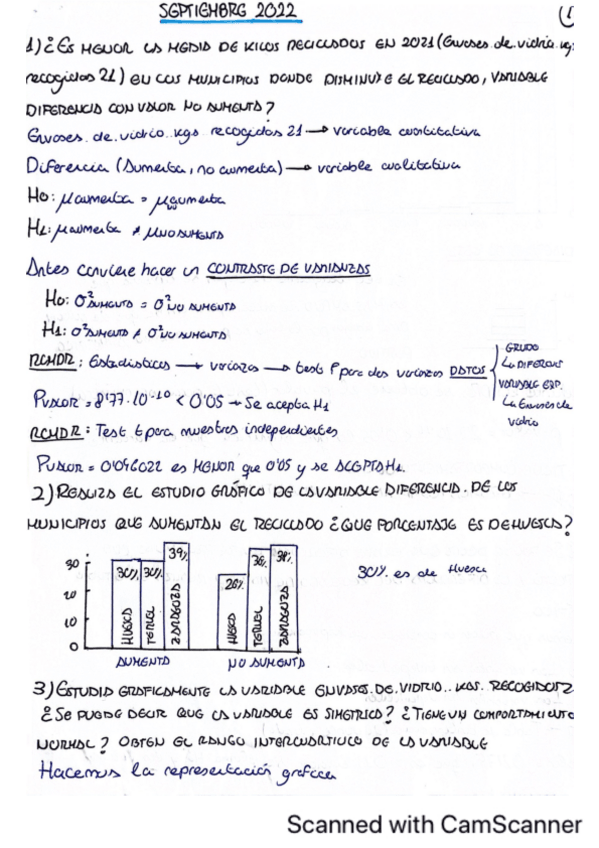 SEPTIEMBRE 2022
1) ¿ES MENOR LA MEDIA DE KILOS RECICLADOS EN 2021 (Envases.de.vidrio.kg.
recogidos 21) EN LOS MUNICIPIOS DONDE DISMINUYE EL RECICLADO, VARIABLE
DIFERENCIA CON VALOR NO AUMENTA?
Envases.de.vidrio.kgs recogidos 21 → variable cuantitativa
Diferencia (Aumenta, no aumenta) → variable cualitativa
H0: μaumenta = μaumenta
H1: μaumenta ≠ μNO AUMENTA
Antes conviene hacer un CONTRASTE DE VARIANZAS
H0: σ²AUMENTA = σ²NO AUMENTA
H1: σ²AUMENTA ≠ σ²NO AUMENTA
RCMDR: Estadísticos → varianzas → test F para dos varianzas DATOS
GRUPO
↳ DIFERENC
VARIABLE EXP.
↳ Envases de
vidrio
PVALOR = 8'77.10⁻¹⁰ < 0'05 → Se acepta H1
RCMDR: Test t para muestras independientes
PVALOR = 0'046022 es MENOR que 0'05 y se ACEPTA H1.
2) REALIZA EL ESTUDIO GRÁFICO DE LA VARIABLE DIFERENCIA. DE LOS
MUNICIPIOS QUE AUMENTAN EL RECICLADO ¿QUE PORCENTAJE ES DE HUESCA?
30 20 10 0
30% 30% 39% 26% 36% 38%
HUESCA TERUEL ZARAGOZA HUESCA TERUEL ZARAGOZA
AUMENTA NO AUMENTA
30% es de Huesca
3) ESTUDIA GRAFICAMENTE LA VARIABLE ENVASES.DE.VIDRIO..KGS. RECOGIDOS 2
¿SE PUEDE DECIR QUE LA VARIABLE ES SIMETRICA? ¿TIENE UN COMPORTAMIENTO
NORMAL? OBTEN EL RANGO INTERCUARTILICO DE LA VARIABLE
Hacemos la representación grafica
Scanned with CamScanner